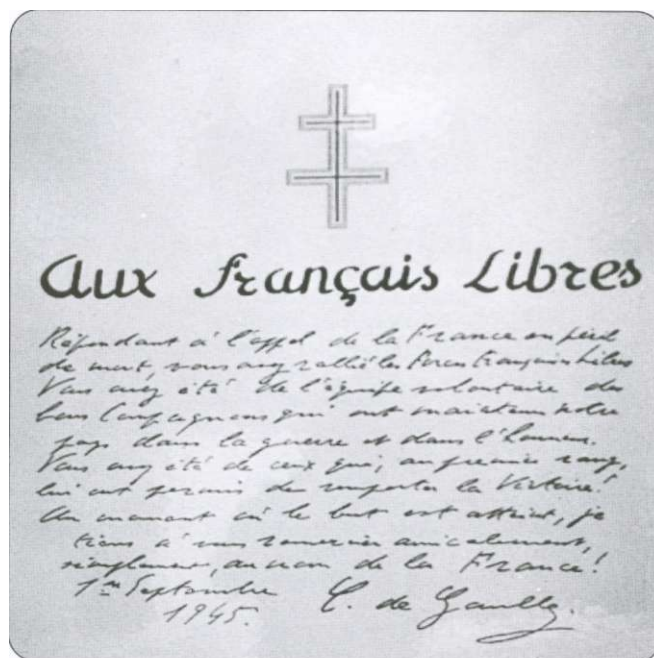 Aux Français Libres
Répondant à l'appel de la France en péril
de mort, vous avez rallié les Forces Françaises Libres
Vous avez été de l'équipe volontaire des
bons Compagnons qui ont maintenu notre
pays dans la guerre et dans l'honneur.
Vous avez été de ceux qui, au premier rang,
lui ont permis de remporter la Victoire!
Au moment où le but est atteint, je
tiens à vous remercier amicalement,
simplement, au nom de la France!
1er Septembre
1945.
C. de Gaulle.